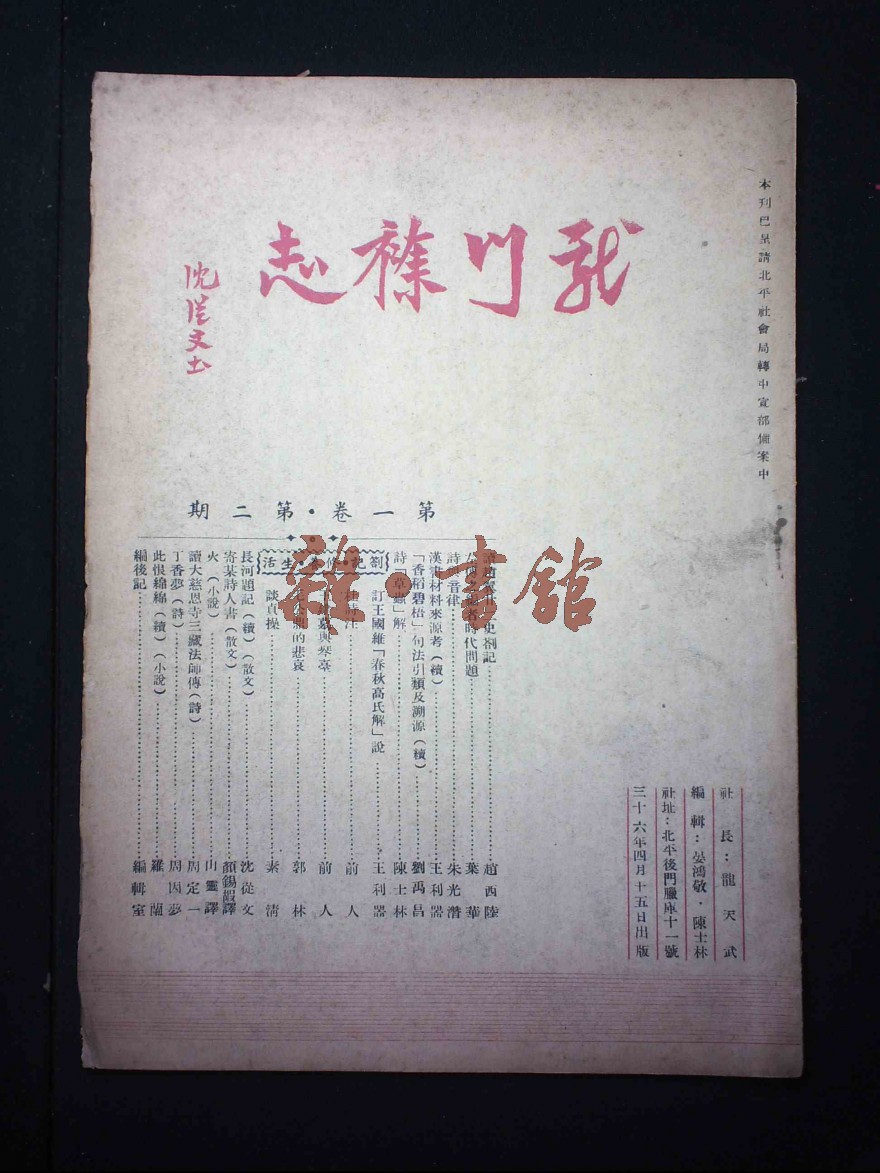 本刊已呈請北平社會局轉中宣部備案中
龍門襍志
沈從文書
第一卷・第二期
史劄記……趙西陸
時代問題……葉華
詩與音律……朱光潛
漢書材料來源考（續）……王利器
「香稻碧梧」句法引類及溯源（續）……劉禹昌
詩「草蟲」解……陳士林
訂王國維「春秋高氏解」說……王利器
前人
與琴臺……前人
的悲哀……郭林
談貞操……素清
長河題記（續）（散文）……沈從文
寄某詩人書（散文）……顏錫嘏譯
火（小說）……山靈譯
讀大慈恩寺三藏法師傳（詩）……周定一
丁香夢（詩）……周因夢
此恨綿綿（續）（小說）……羅蘭
編後記……編輯室
劄記
生活
社長：龍天武
編輯：晏鴻敬・陳士林
社址：北平後門臘庫十一號
三十六年四月十五日出版
雜・書館